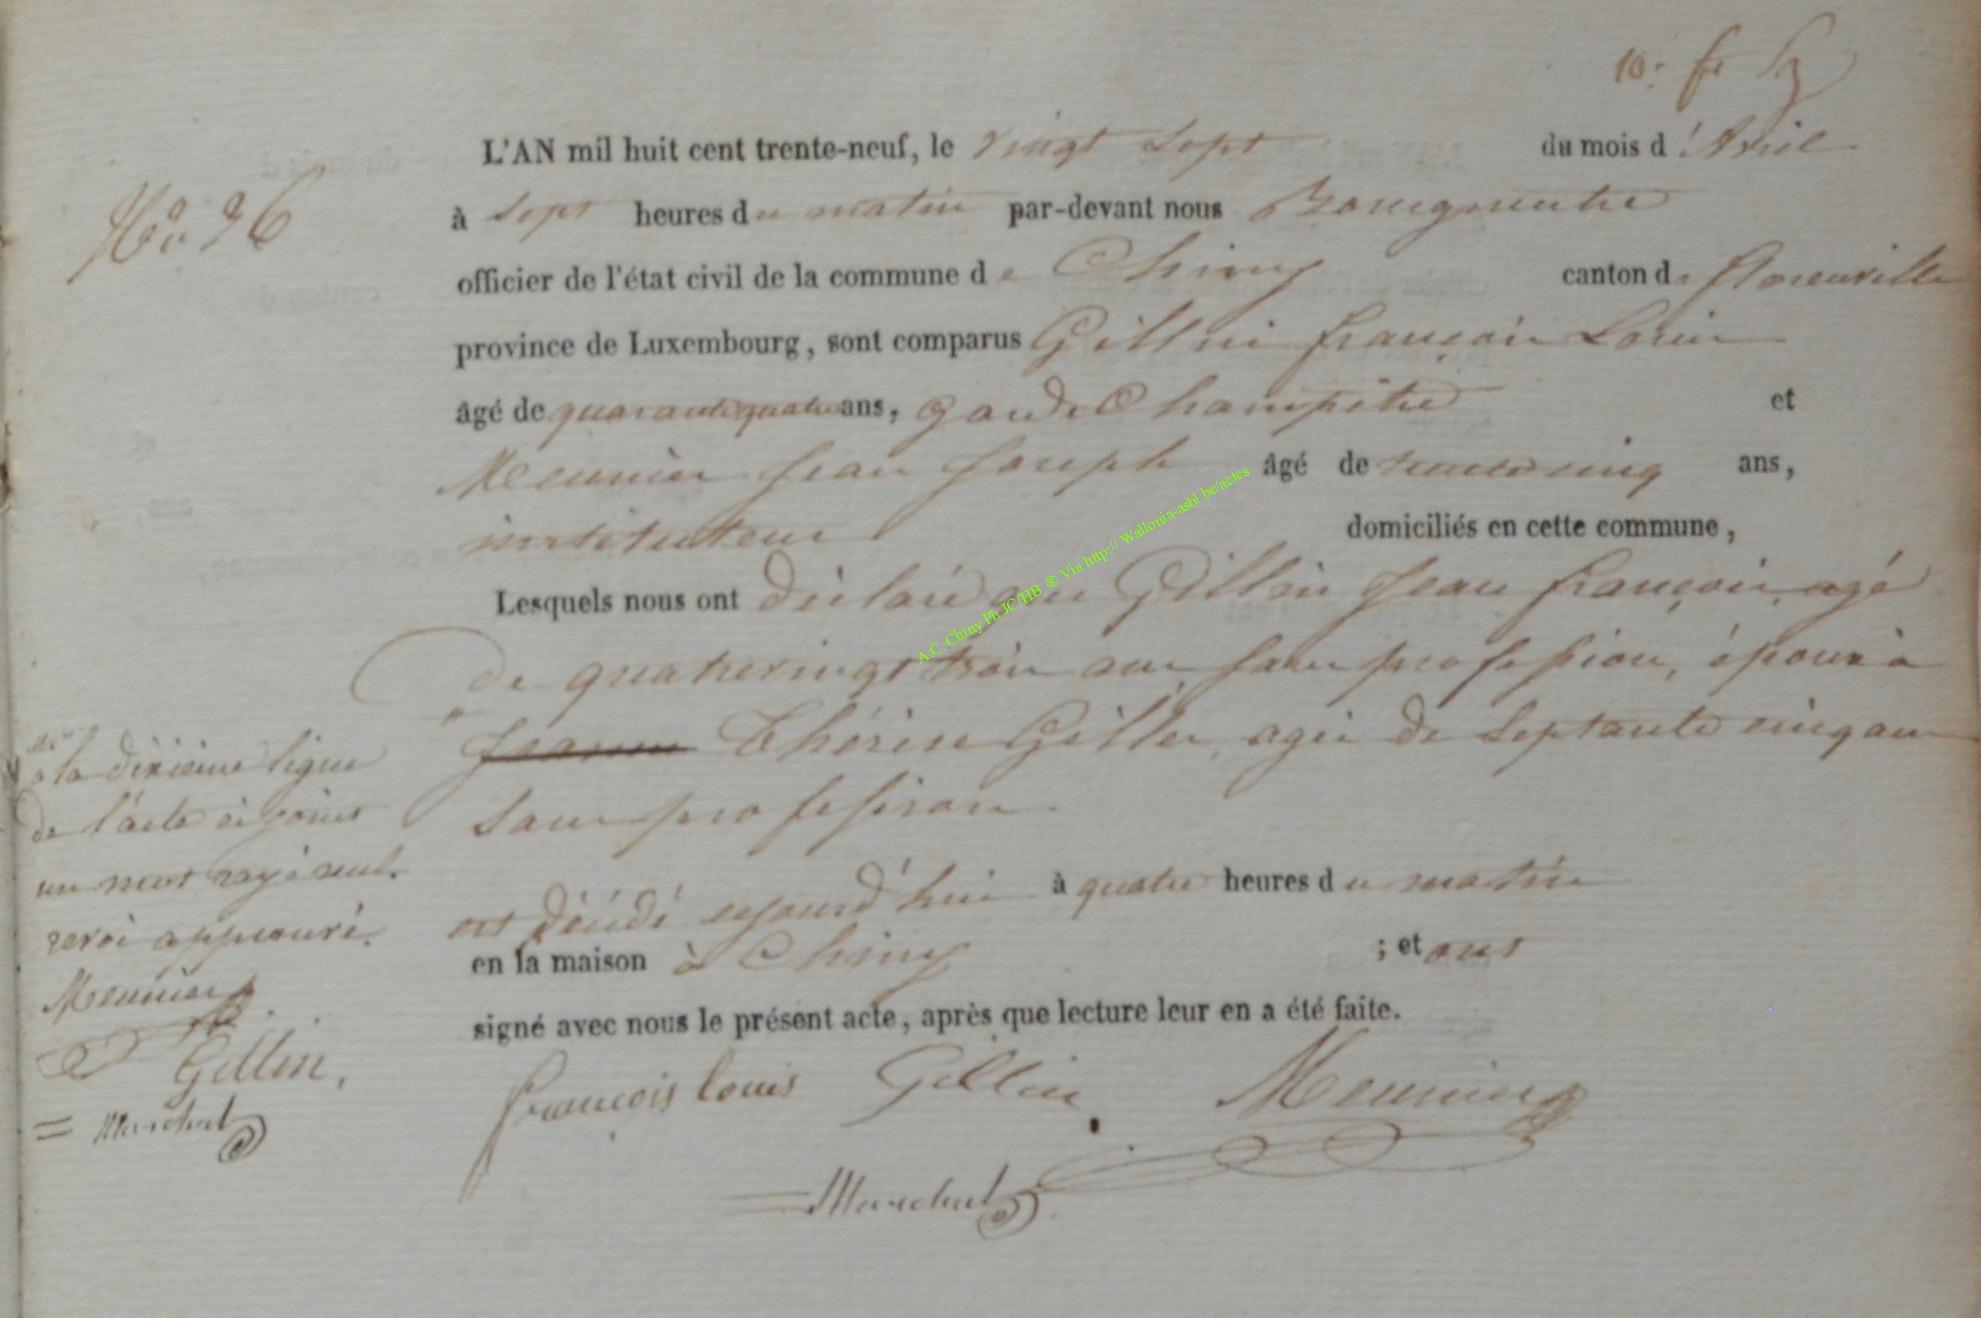 10: f
L'AN mil huit cent trente-neuf, le vingt sept du mois d'Avril
No 26
à sept heures du matin par-devant nous Bourgmestre
officier de l'état civil de la commune de Chiny canton de florenville
province de Luxembourg, sont comparus Gillin françois Louis
âgé de quarante quatre ans, garde Champêtre et
Meunier Jean Joseph âgé de trente cinq ans,
instituteur domiciliés en cette commune,
Lesquels nous ont déclaré que Gillin Jean françois, agé
de quatrevingt trois ans, sans profession, époux à
Jeanne Thérèse Gillet, agée de septante cinq ans
sans profession.
est décédé cejourd'hui à quatre heures du matin
en la maison à Chiny ; et ont
signé avec nous le présent acte, après que lecture leur en a été faite.
à la dixieme ligne
de l'acte ci joint
un mot rayé nul.
approuvé.
Meunier
Gillin,
= Marchal
françois louis Gillin. Meunier
= Marchal
A.C. Chiny Ph JC/HB ® Via http:// Wallonia-asbl.be/actes